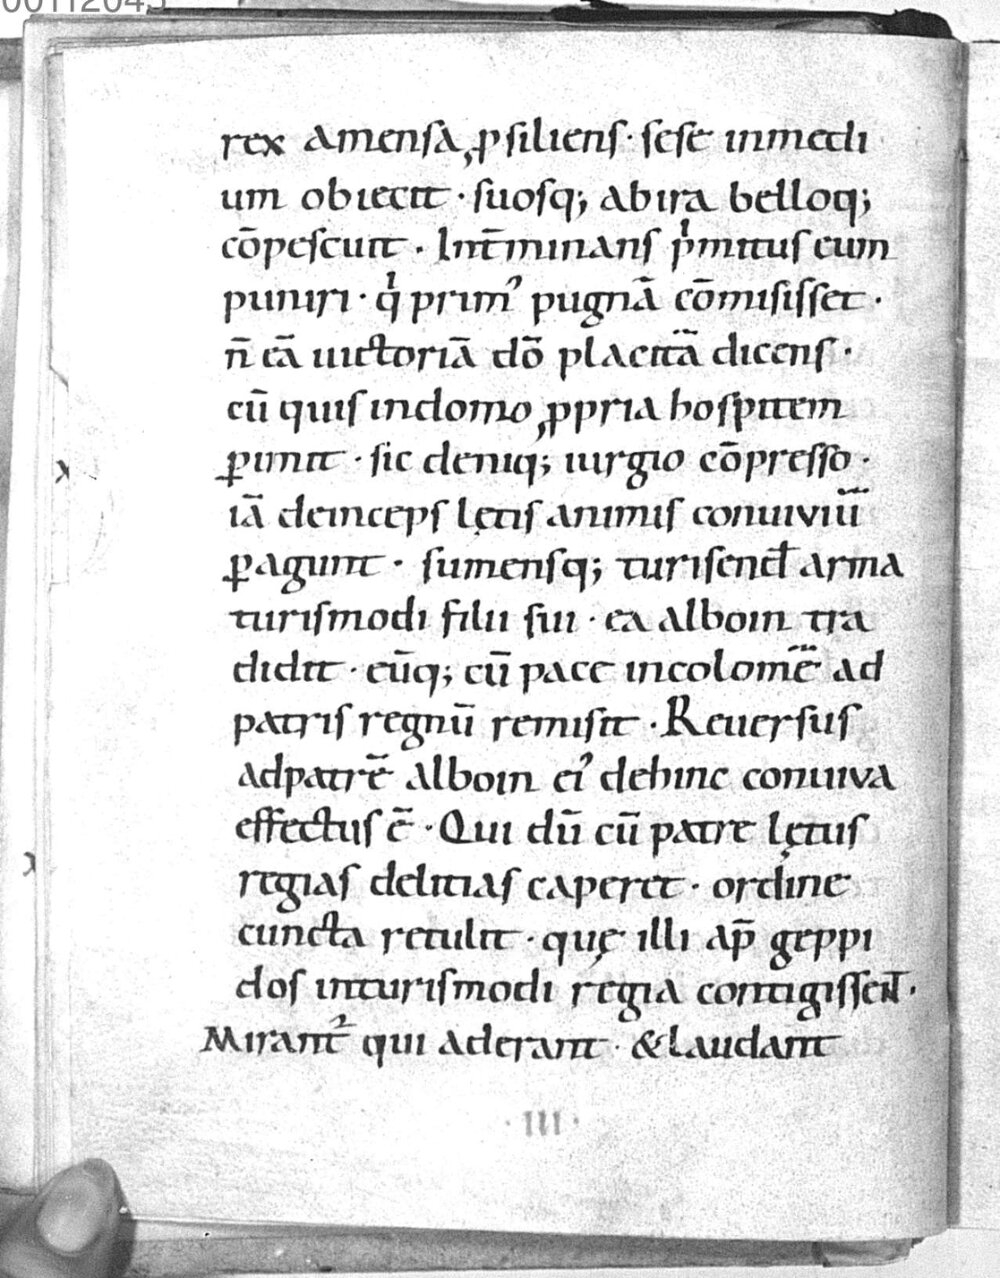 rex amensa, ꝓsiliens· sese inmedi
um obiecit · suosq; abira belloq;
cōpescuit · Int̄minans p̍mitus eum
puniri · q̍ prim᾽ pugnā cōmisisset ·
n̄ eā uictoriā dō placitā dicens ·
cū quis indomo ꝓpria hospitem
ꝑimit · sic deniq; iurgio cōpresso ·
iā deinceps lętis animis conuiviū
ꝑagunt · sumensq; turisend̄ arma
turismodi filii sui · ea alboin tra
didit · eūq; cū pace incolomē ad
patris regnū remisit · Reuersus
adpatrē alboin ei᾽ dehinc conuiva
effectus ē · Qui dū cū patre lętus
regias delitias caperet · ordine
cuncta retulit · quę illi ap̄ geppi
dos inturismodi regia contigissent ·
Mirant᷑ qui aderant · &laudant
· III ·